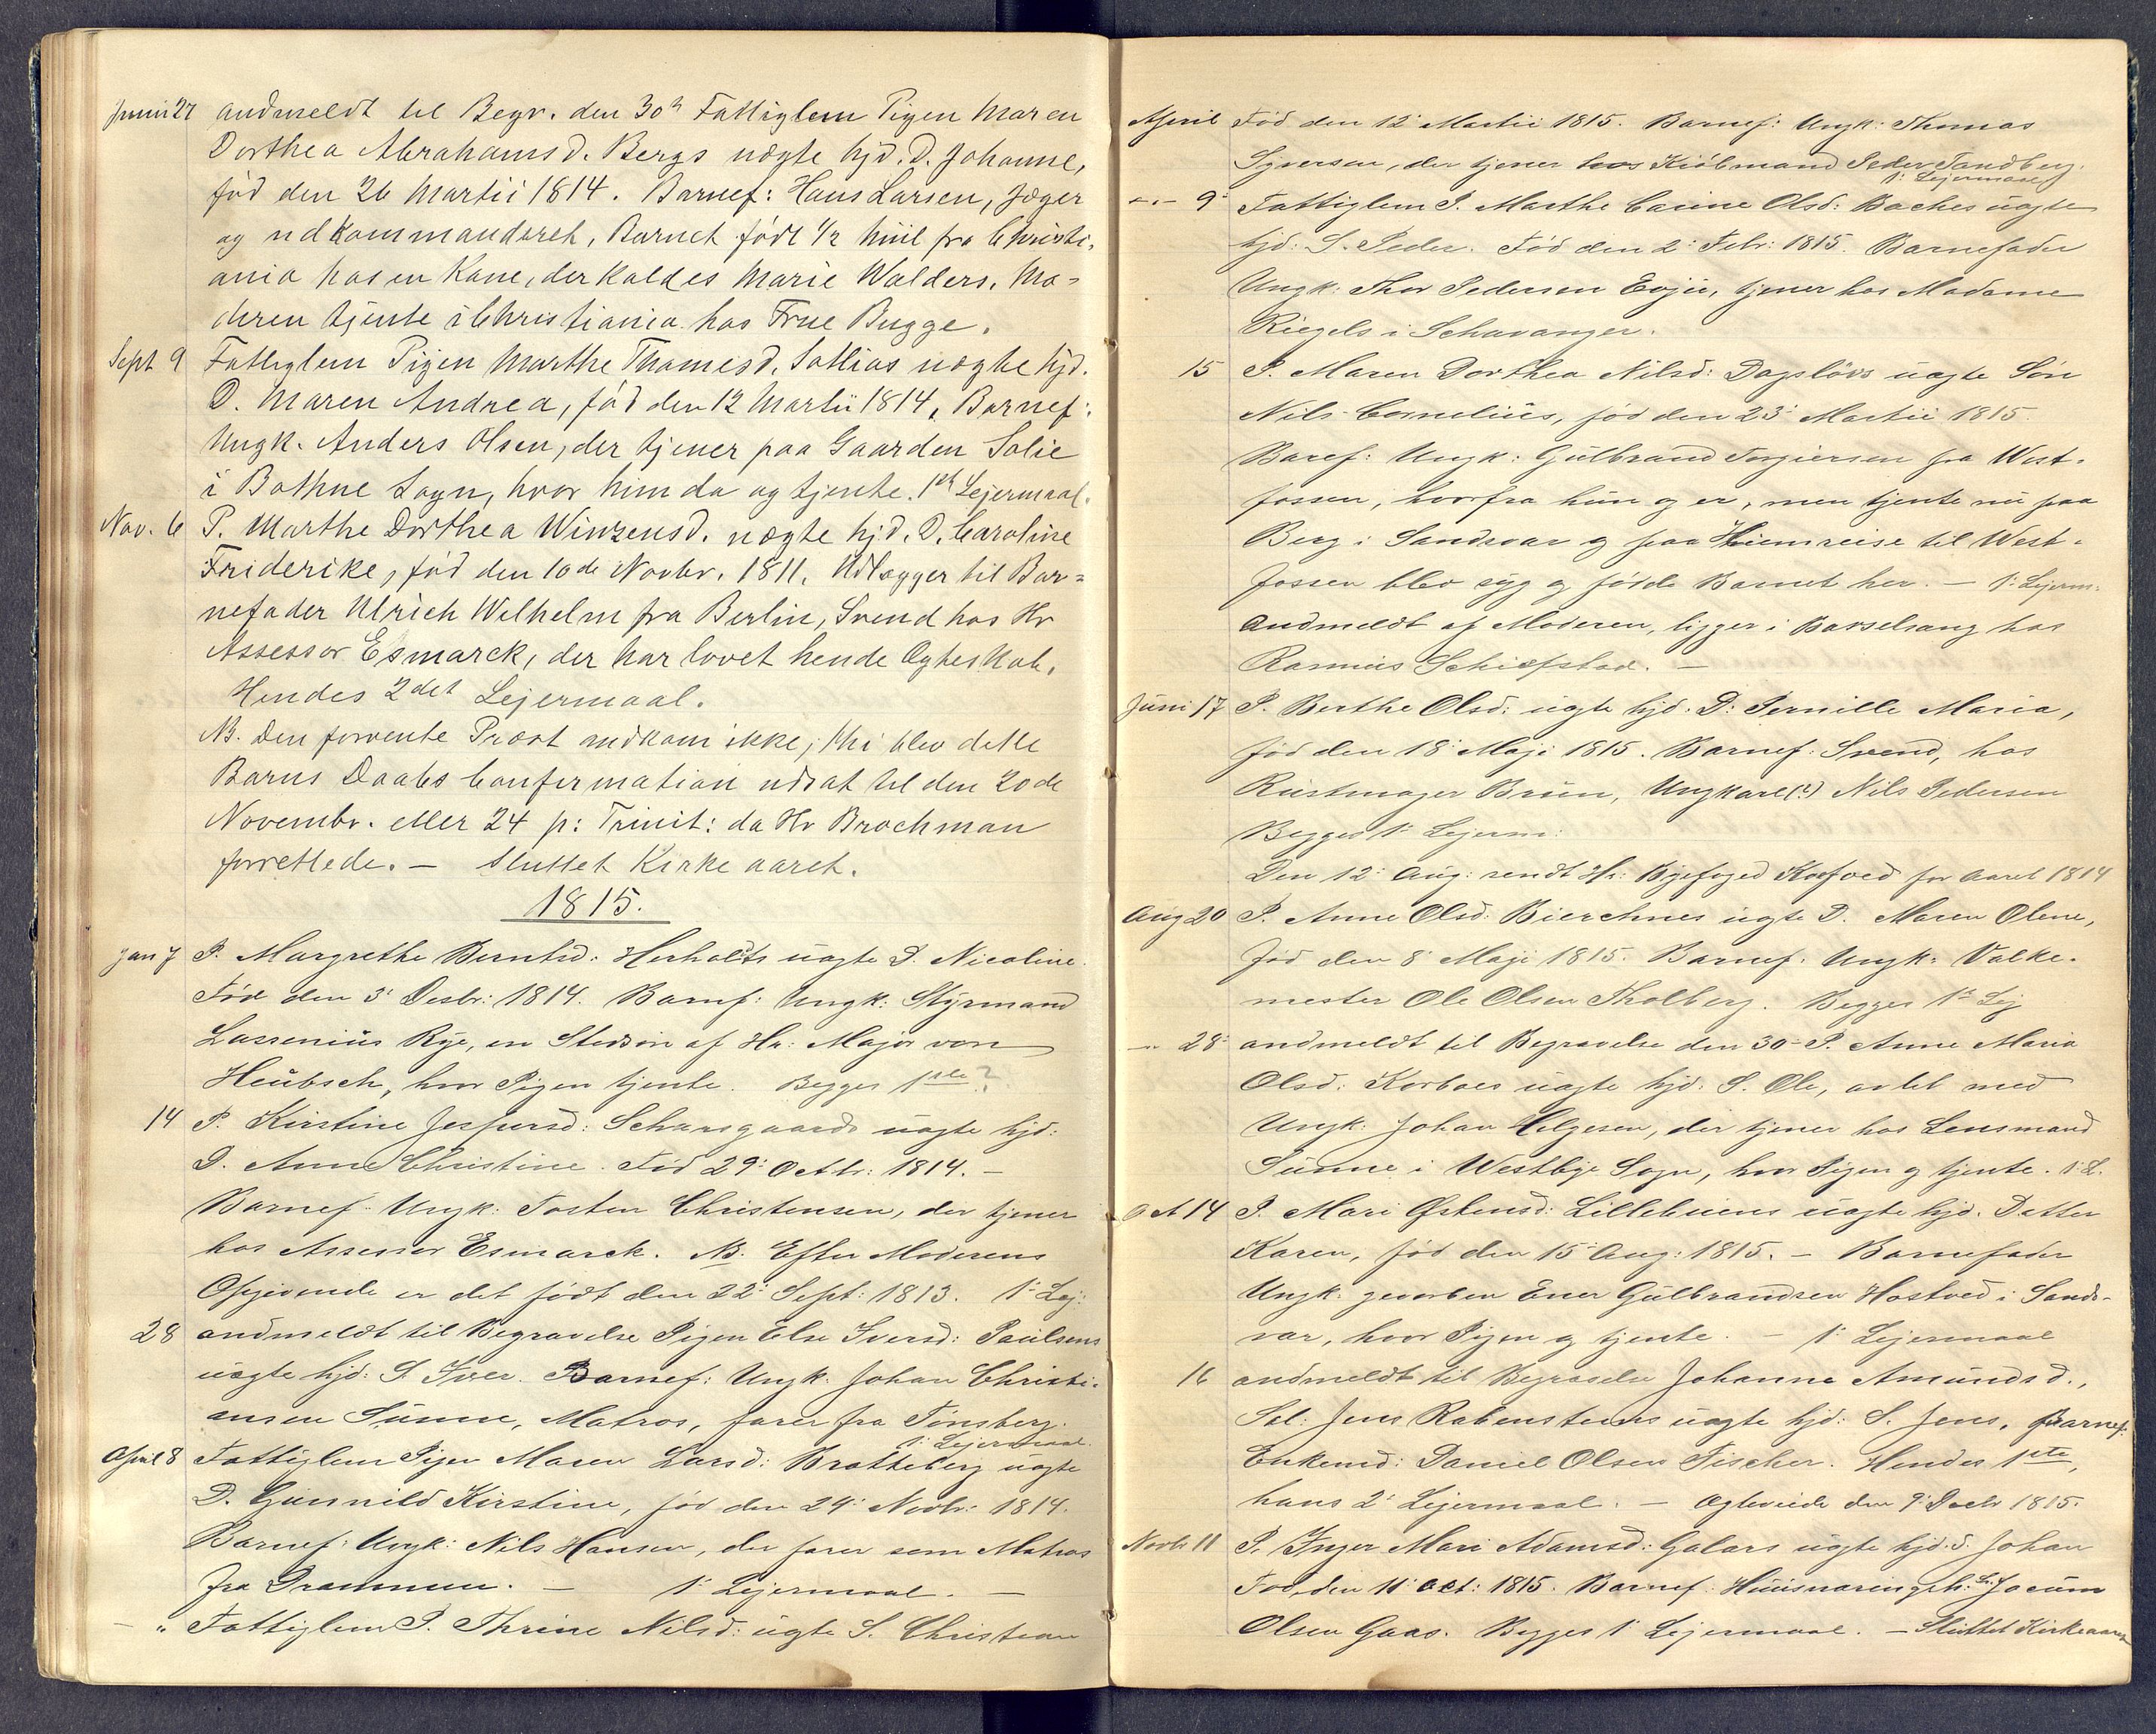 Juni 27 andmeldt til Begr. den 30th Fattiglem Pigen Maren
Dorthea Abrahamsd. Bergs uægte hjd. D. Johanne,
fød den 26 Martii 1814. Barnef: Hans Larsen, Jæger
og udkommanderet, Barnet født 1/2 Miil fra Christi-
ania hos en Kone, der kaldes Marie Walders. Mo-
deren tjente i Christiania hos Frue Bugge.
Sept 9 Fattiglem Pigen Marthe Thomesd. Sætlias uægte hjd.
D. Maren Andrea, fød den 12 Martii 1814. Barnef:
Ungk. Anders Olsen, der tjener paa Gaarden Solie
i Bothne Sogn, hvor hun da og tjente. 1st Lejermaal.
Nov. 6 P. Marthe Dorthea Winzensd. uægte hjd. D. Caroline
Friderike, fød den 10de Novbr. 1811. Udlægger til Bar-
nefader Ulrich Wilhelm fra Berlin, Svend hos Hr
Assessor Esmarck, der har lovet hende Ægteskab.
Hendes 2det Lejermaal.
NB. Den forvente Præst andkom ikke; thi blev dette
Barns Daabs Confirmation udsat til den 20de
Novembr. eller 24 p: Trinit: da Hr Brochman
forrettede. — Sluttet Kirkeaaret.
1815.
Jan 7 P. Margrethe Berntsd: Herholdts uægte D. Nicoline.
Fød den 3: Desbr: 1814. Barnef: Ungk: Styrmand
Lassenius Rye, en Stedsøn af Hr: Major von
Heubsch, hvor Pigen tjente. Begges 1ste?
14 P. Kirstine Jespersd: Scharsgaards uægte hjd:
D. Anne Christine. Fød 29: Octbr: 1814. —
Barnef. Ungk: Tosten Christensen, der tjener
hos Assessor Esmarck. NB. Efter Moderens
Opgivende er det født den 22: Sept: 1813. 1: Lej:
28 andmeldt til Begravelse Pigen Else Iversd: Paulsens
uægte hjd: S. Iver. Barnef: Ungk: Johan Christi-
ansen Sunne, Matros, farer fra Tönsberg.
1: Lejermaal.
April 8 Fattiglem Pigen Maren Larsd: Bratteberg uægte
D. Gunnild Kirstine, fød den 24: Novbr: 1814.
Barnef: Ungk: Nils Hansen, der farer som Matros
fra Drammen. — 1: Lejermaal. —
— " Fattiglem P. Thrine Nilsd: uægte S. Christian
April Fød den 12: Martii 1815. Barnef: Ungk: Thomas
Syversen, der tjener hos Kiöbmand Peder Sandberg.
1: Lejermaal
— 9: Fattiglem P. Marthe Carine Olsd: Baches uægte
hjd: S. Peder. Fød den 2: Febr: 1815. Barnefader
Ungk: Thor Pedersen Evju, tjener hos Madame
Riegels i Schavanger.
15 P. Maren Dorthea Nilsd: Dagslövs uægte Søn
Nils Cornelius, fød den 23: Martii 1815.
Baref: Ungk: Gulbrand Torgiersen fra West-
fossen, hvorfra hun og er, men tjente nu paa
Berg i Sandsvær og paa Hiemreise til West-
fossen blev syg og fødde Barnet her. — 1: Lejerm:
Andmeldt af Moderen, ligger i Barselsæng hos
Rasmus Schiefstad. —
Juni 17 P. Berthe Olsd: uægte hjd. D: Pernille Maria,
fød den 18: Maji 1815. Barnef: Svend, hos
Rustmager Brun, Ungkarl(?) Nils Pedersen
Begges 1: Lejerm:
Den 12: Aug: sendt Hr: Byefoged Kofoed for Aaret 1814
Aug 20 P. Anne Olsd. Bierchnes uægte D. Maren Olene,
fød den 8: Maji 1815. Barnef: Ungk: Valke-
mester Ole Olsen Tholberg. Begges 1st Lej
— 28: andmeldt til Begravelse den 30: P. Anne Maria
Olsd: Korboes uægte hjd: S. Ole, avlet med
Ungk: Johan Helgesen, der tjener hos Lensmand
Sunne i Westbye Sogn, hvor Pigen og tjente. 1: L.
Oct 14 P. Mari Østensd: Lillebuens uægte hjd. Datter
Karen, fød den 15: Aug: 1815. — Barnefader
Ungk: geworben Ener Gulbrandsen Hostved i Sands-
vær, hvor Pigen og tjente. 1: Lejermaal
16 andmeldt til Begravelse Johanne Amundsd.,
Sal: Jens Rabensteens uægte hjd: S. Jens, Barnef:
Enkemd: Daniel Olsen Fischer. Hendes 1ste,
hans 2: Lejermaal. — Ægteviede den 9: Decbr 1815.
Novbr 11 P. Inger Mari Adamsd: Galaas uægte hjd. S. Johan
Fød den 11: Oct: 1815. Barnef: Jocum
Olsen Gaas. Begges 1: Lejermaal. — Sluttet Kirkeaaret